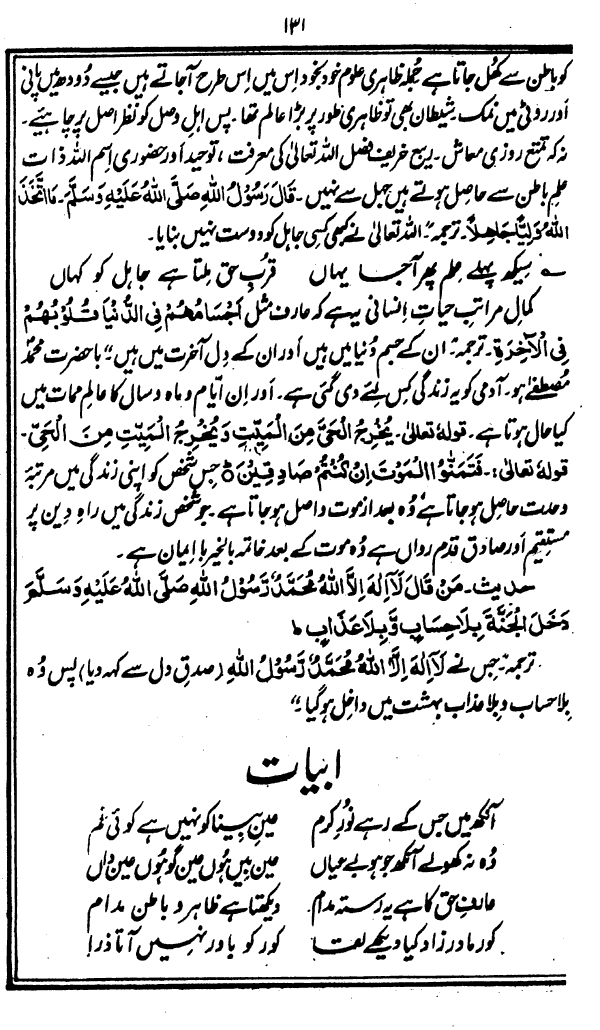 ۱۳۱
کو باطن سے کھل جاتا ہے جملہ ظاہری علوم خود بخود اس میں اس طرح آجاتے ہیں جیسے دودھ میں پانی
اور روٹی میں نمک شیطان بھی تو ظاہری طور پر بڑا عالم تھا۔ پس اہلِ وصل کو نظر اصل پر چاہئیے۔
نہ کہ تمتع روزی معاش۔ ربیع خریف فضل اللہ تعالیٰ کی معرفت، توحید اور حضوری اِسم اللہ ذات
علمِ باطن سے حاصل ہوتے ہیں جہل سے نہیں۔ قَالَ رَسُوْلُ اللهِ صَلَّى اللهُ عَلَيْهِ وَسَلَّمَ۔ مَا اتَّخَذَ
اللهُ وَلِيًّا جَاهِلًا۔ ترجمہ" اللہ تعالیٰ نے کبھی کسی جاہل کو دوست نہیں بنایا۔
؎ سیکھ پہلے علم پھر آجا یہاں قربِ حق ملتا ہے جاہل کو کہاں
کمالِ مراتبِ حیاتِ اِنسانی یہ ہے کہ عارف مثل اَجْسَامُهُمْ فِی الدُّنْیَا قُلُوْبُهُمْ
فِی الْاٰخِرَةِ۔ ترجمہ" ان کے جسم دُنیا میں ہیں اور ان کے دِل آخرت میں ہیں" باحضرت محمدؐ
مصطفٰے ہو۔ آدمی کو یہ زندگی کس لئے دی گئی ہے۔ اور اِن ایّام و ماہ و سال کا عالمِ ممات میں
کیا حال ہوتا ہے۔ قولہٗ تعالیٰ۔ يُخْرِجُ الْحَيَّ مِنَ الْمَيِّتِ وَيُخْرِجُ الْمَيِّتِ مِنَ الْحَيِّ۔
قولہٗ تعالیٰ:۔ فَتَمَنَّوُا الْمَوْتَ اِنْ كُنْتُمْ صَادِقِيْنَ ○ جس شخص کو اپنی زندگی میں مرتبۂ
وحدت حاصل ہو جاتا ہے وُہ بعد از موت واصل ہو جاتا ہے۔ جو شخص زندگی میں راہِ دِین پر
مستقیم اور صادق قدم رواں ہے وُہ موت کے بعد خاتمہ بالخیر با اِیمان ہے۔
حدیث۔ مَنْ قَالَ لَآ اِلٰهَ اِلَّا اللهُ مُحَمَّدٌ رَّسُوْلُ اللهِ صَلَّى اللهُ عَلَيْهِ وَسَلَّمَ
دَخَلَ الْجَنَّةَ بِلَا حِسَابٍ وَّ بِلَا عَذَابٍ ط
ترجمہ" جس نے لَآ اِلٰهَ اِلَّا اللهُ مُحَمَّدٌ رَّسُوْلُ اللهِ (صدقِ دل سے کہہ دیا) پس وُہ
بلا حساب و بلا عذاب بہشت میں داخل ہو گیا۔"
ابیات
آنکھ میں جس کے رہے نورِ کرم عینِ بینا کو نہیں ہے کوئی غم
وُہ نہ کھولے آنکھ جو ہو بے عیاں عین بیں ہُوں عین گو ہُوں عین داں
عارفِ حق کا ہے یہ رستہ مدام دیکھتا ہے ظاہر و باطن مدام
کور مادر زاد کیا دیکھے لقا کور کو باور نہیں آتا ذرا